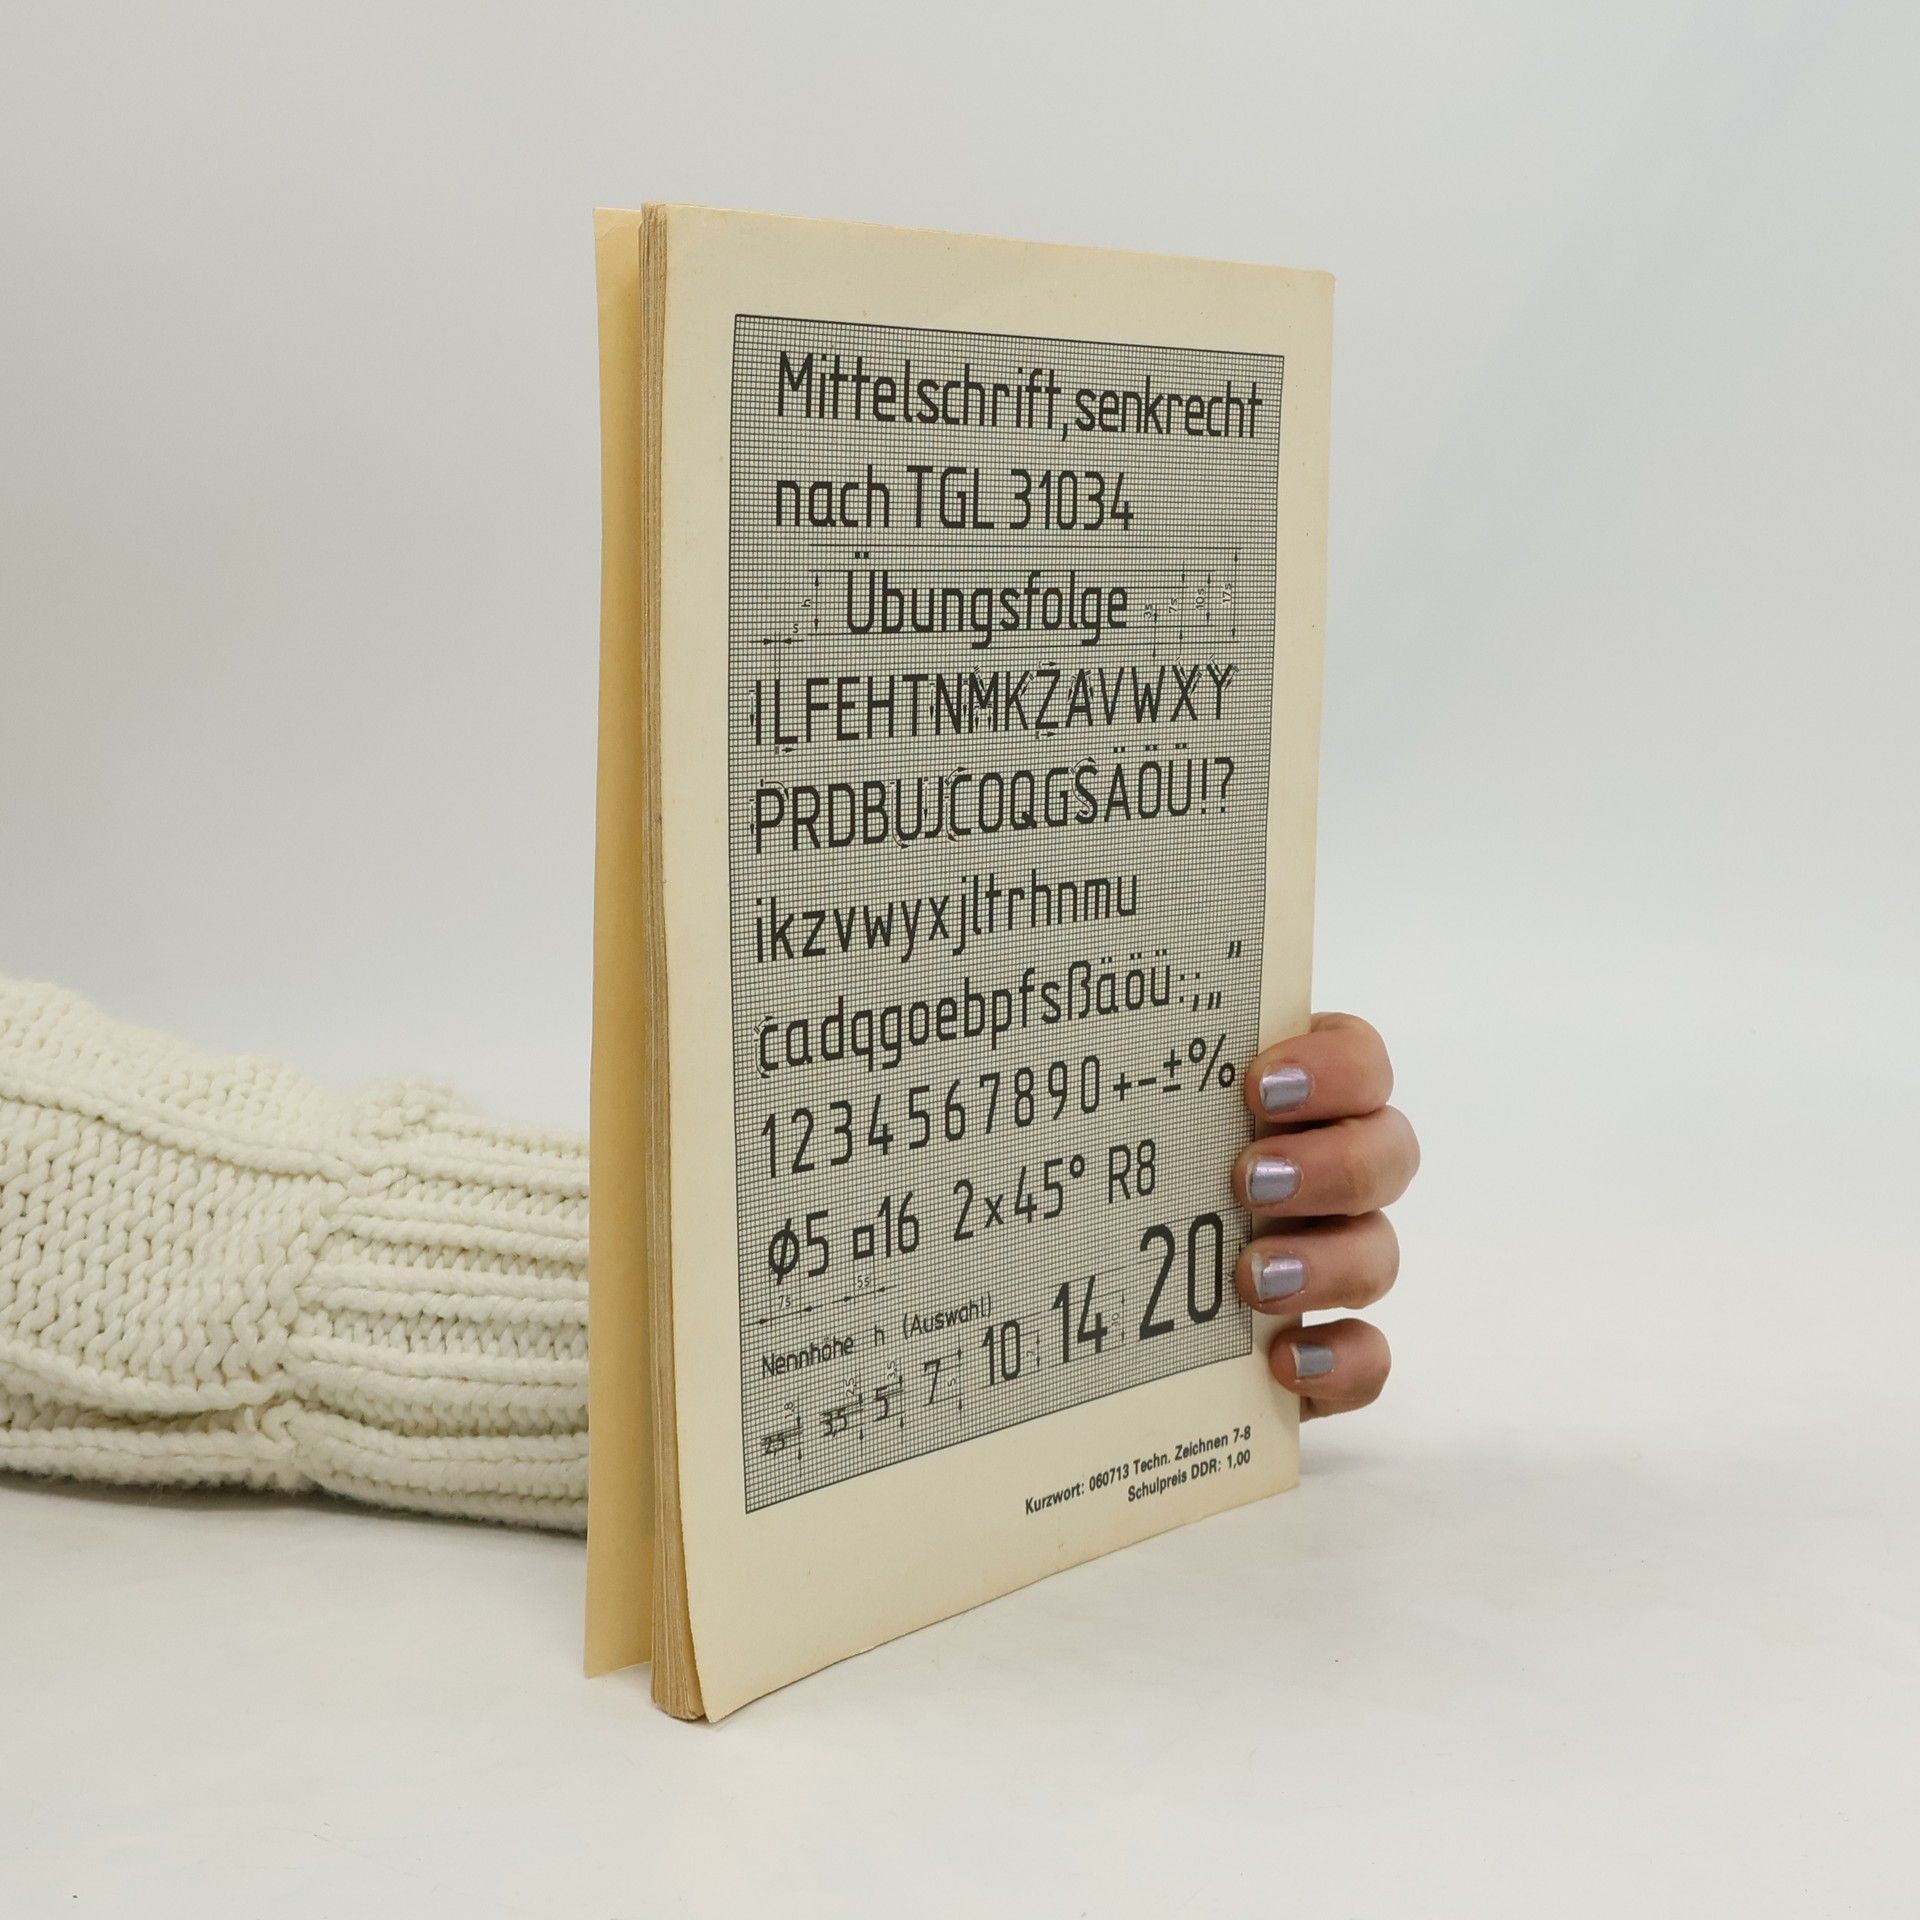 Mittelschrift, senkrecht
nach TGL 31034
Übungsfolge
s h 3s 7s 10s 17s
ILFEHTNMKZAVWXY
PRDBUJCOQGSÄÖÜ!?
ikzvwyxjltrhnmu
cadqgoebpfsßäöü:;„“
1234567890+-±%
⌀5 □16 2×45° R8
7s 5s
Nennhöhe h (Auswahl)
2,5 1,8 3,5 2,5 5 3,5 7 10 14 20
Kurzwort: 060713 Techn. Zeichnen 7-8
Schulpreis DDR: 1,00